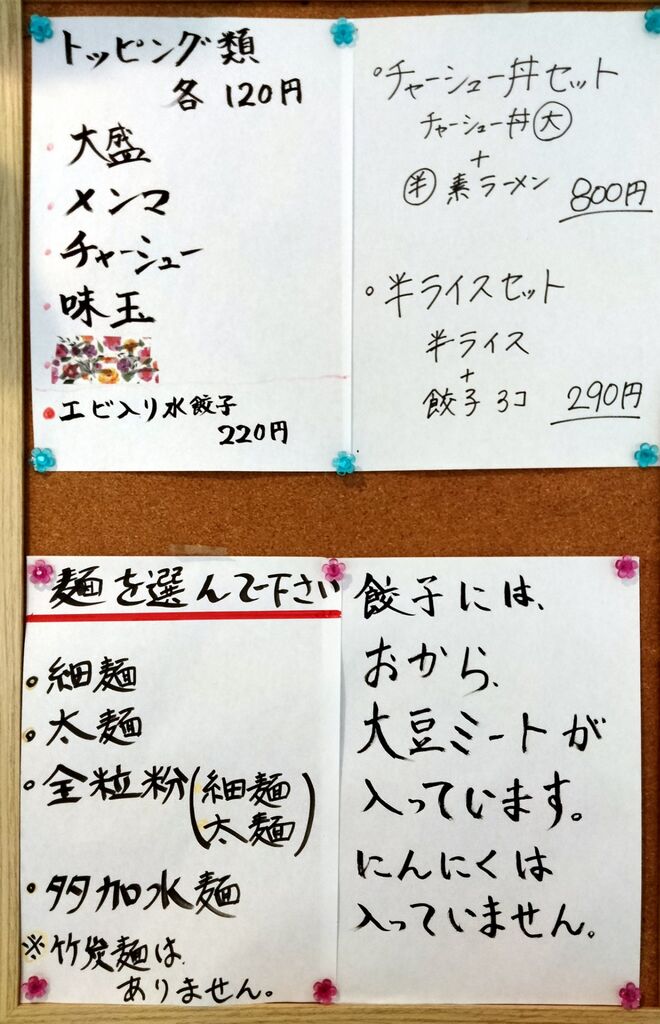 トッピング類
各 120円
・大盛
・メンマ
・チャーシュー
・味玉
・エビ入り水餃子
220円
。チャーシュー丼セット
チャーシュー丼(大)
+
(半)素ラーメン 800円
。半ライスセット
半ライス
+
餃子 3コ 290円
麺を選んで下さい
・細麺
・太麺
・全粒粉(細麺
太麺)
・多加水麺
※竹炭麺は、
ありません。
餃子には、
おから、
大豆ミートが
入っています。
にんにくは
入っていません。